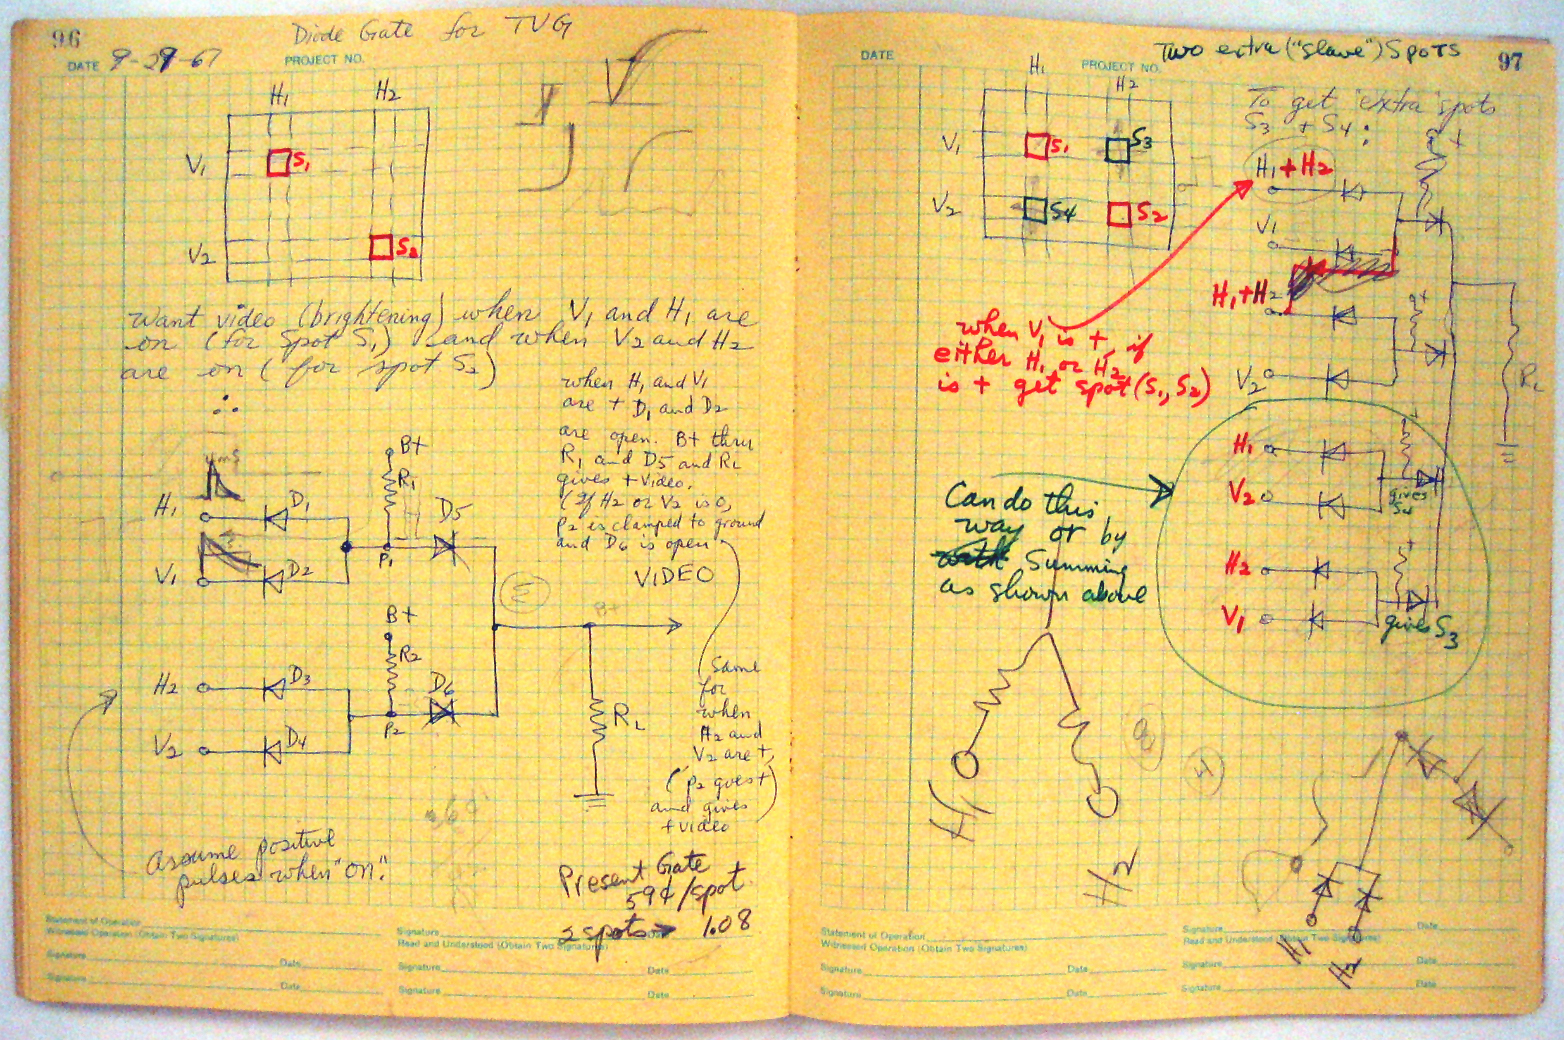 96
Diode Gate for TVG
DATE 9-29-67
PROJECT NO.
H1 H2
V1 S1
V2 S2
Want video (brightening) when V1 and H1 are
on (for spot S1) and when V2 and H2
are on (for spot S2)
∴
when H1 and V1
are + D1 and D2
are open. B+ thru
R1 and D5 and RL
gives +Video.
(If H2 or V2 is 0,
P2 is clamped to ground
and D6 is open
VIDEO
B+
R1
H1 D1
D5
P1
V1 D2
B+
B+
R2
H2 D3
D6
P2
V2 D4
RL
Same
for
when
H2 and
V2 are +,
(P2 goes +
and gives
+video)
Assume positive
pulses when "on".
Present Gate
59¢/spot
2 spots → 1.08
Statement of Operation
Witnessed Operation (Obtain Two Signatures)
Signature Date
Signature Date
Signature Date
Read and Understood (Obtain Two Signatures)
Signature Date
Signature Date
DATE
PROJECT NO.
Two extra ("slave") Spots
97
H1 H2
V1 S1 S3
V2 S4 S2
To get extra spots
S3 + S4:
+
H1 + H2
V1
H1 + H2
+
V2
RL
when V1 is +, if
either H1 or H2
is + get spot (S1, S2)
H1
+
V2
gives
S4
H2
+
V1
gives S3
Can do this
way or by
summing
as shown above
H1
H2
H1
H2
Statement of Operation
Witnessed Operation (Obtain Two Signatures)
Signature Date
Signature Date
Signature Date
Read and Understood (Obtain Two Signatures)
Signature Date
Signature Date